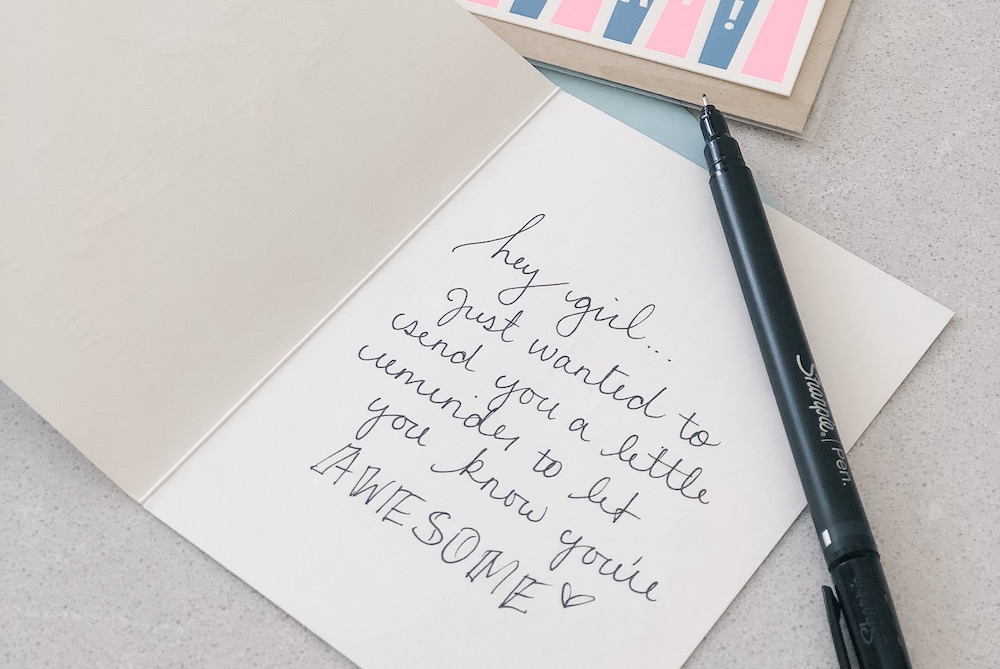 !
hey girl...
Just wanted to
send you a little
reminder to let
you know you're
AWESOME ♡
Sharpie. Pen.
Sharpie